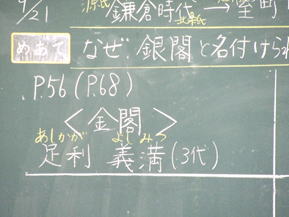 9/21 源氏 鎌倉時代→室町
北条氏
めあて なぜ、銀閣と名付けられ
P.56(P.68)
<金閣>
あしかが よしみつ
足利 義満(3代)